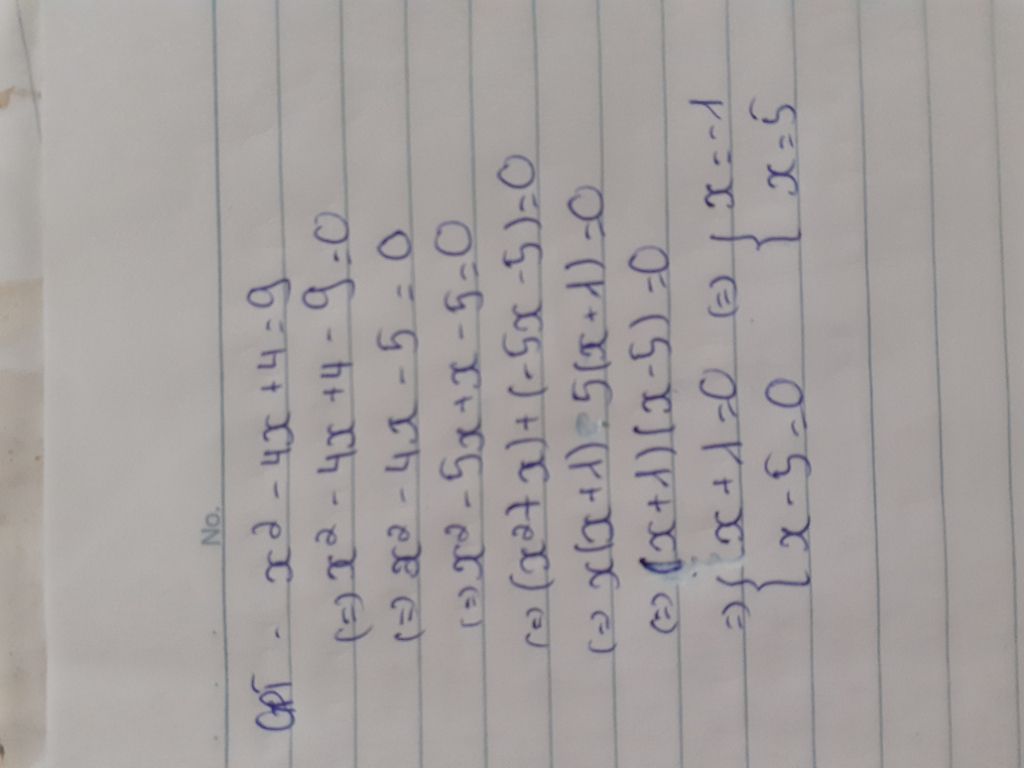 No.
GPT - x² - 4x + 4 = 9
(=) x² - 4x + 4 - 9 = 0
(=) x² - 4x - 5 = 0
(=) x² - 5x + x - 5 = 0
(=) (x² + x) + (-5x - 5) = 0
(=) x(x + 1) - 5(x + 1) = 0
(=) (x + 1)(x - 5) = 0
=) { x + 1 = 0 (=) { x = -1
{ x - 5 = 0 { x = 5